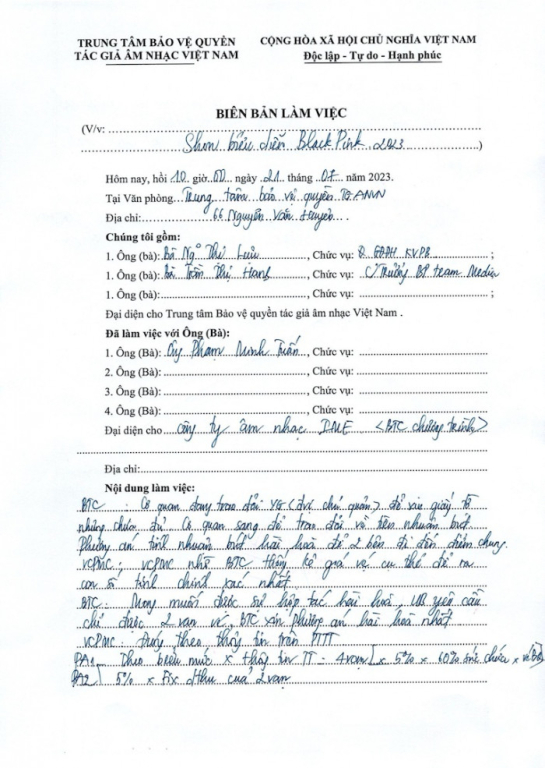 TRUNG TÂM BẢO VỆ QUYỀN
TÁC GIẢ ÂM NHẠC VIỆT NAM
CỘNG HÒA XÃ HỘI CHỦ NGHĨA VIỆT NAM
Độc lập - Tự do - Hạnh phúc
BIÊN BẢN LÀM VIỆC
(V/v:
Show biểu diễn BlackPink 2023)
Hôm nay, hồi 10 giờ 00 ngày 21 tháng 07 năm 2023.
Tại Văn phòng Trung tâm bảo vệ quyền TGANVN
Địa chỉ: 66 Nguyễn Văn Huyên
Chúng tôi gồm:
1. Ông (bà): Bà Ngô Thị Lựu, Chức vụ: KVPB ;
1. Ông (bà): Bà Trần Thị Hạnh, Chức vụ: Trưởng BP team Media
1. Ông (bà):, Chức vụ: ;
Đại diện cho Trung tâm Bảo vệ quyền tác giả âm nhạc Việt Nam .
Đã làm việc với Ông (Bà):
1. Ông (Bà): Ông Phạm Minh Tuấn, Chức vụ:
2. Ông (Bà):, Chức vụ:
3. Ông (Bà):, Chức vụ:
4. Ông (Bà):, Chức vụ:
Đại diện cho công ty âm nhạc IME <BTC chương trình>
Địa chỉ:
Nội dung làm việc:
BTC : Cơ quan đang trao đổi YG (chủ quản) để giấy tờ
những chưa đủ. Cơ quan sang để trao đổi về tiền nhuận bút
Phương án tính nhuận bút hài hoà để 2 bên đi đến điểm chung.
VCPMC : VCPMC nhờ BTC thống kê giá vé cụ thể để ra
con số tính chính xác nhất
BTC : Mong muốn được sự hợp tác hài hoà yêu cầu
chỉ được 2 vạn vé, BTC xin phương án hài hoà nhất
VCPMC : theo thông tin trên PTTT
PA1 Theo biểu mức x thông tin TT : 4 vạn x 5% x 60% sức chứa x
PA2 5% x của 2 vạn